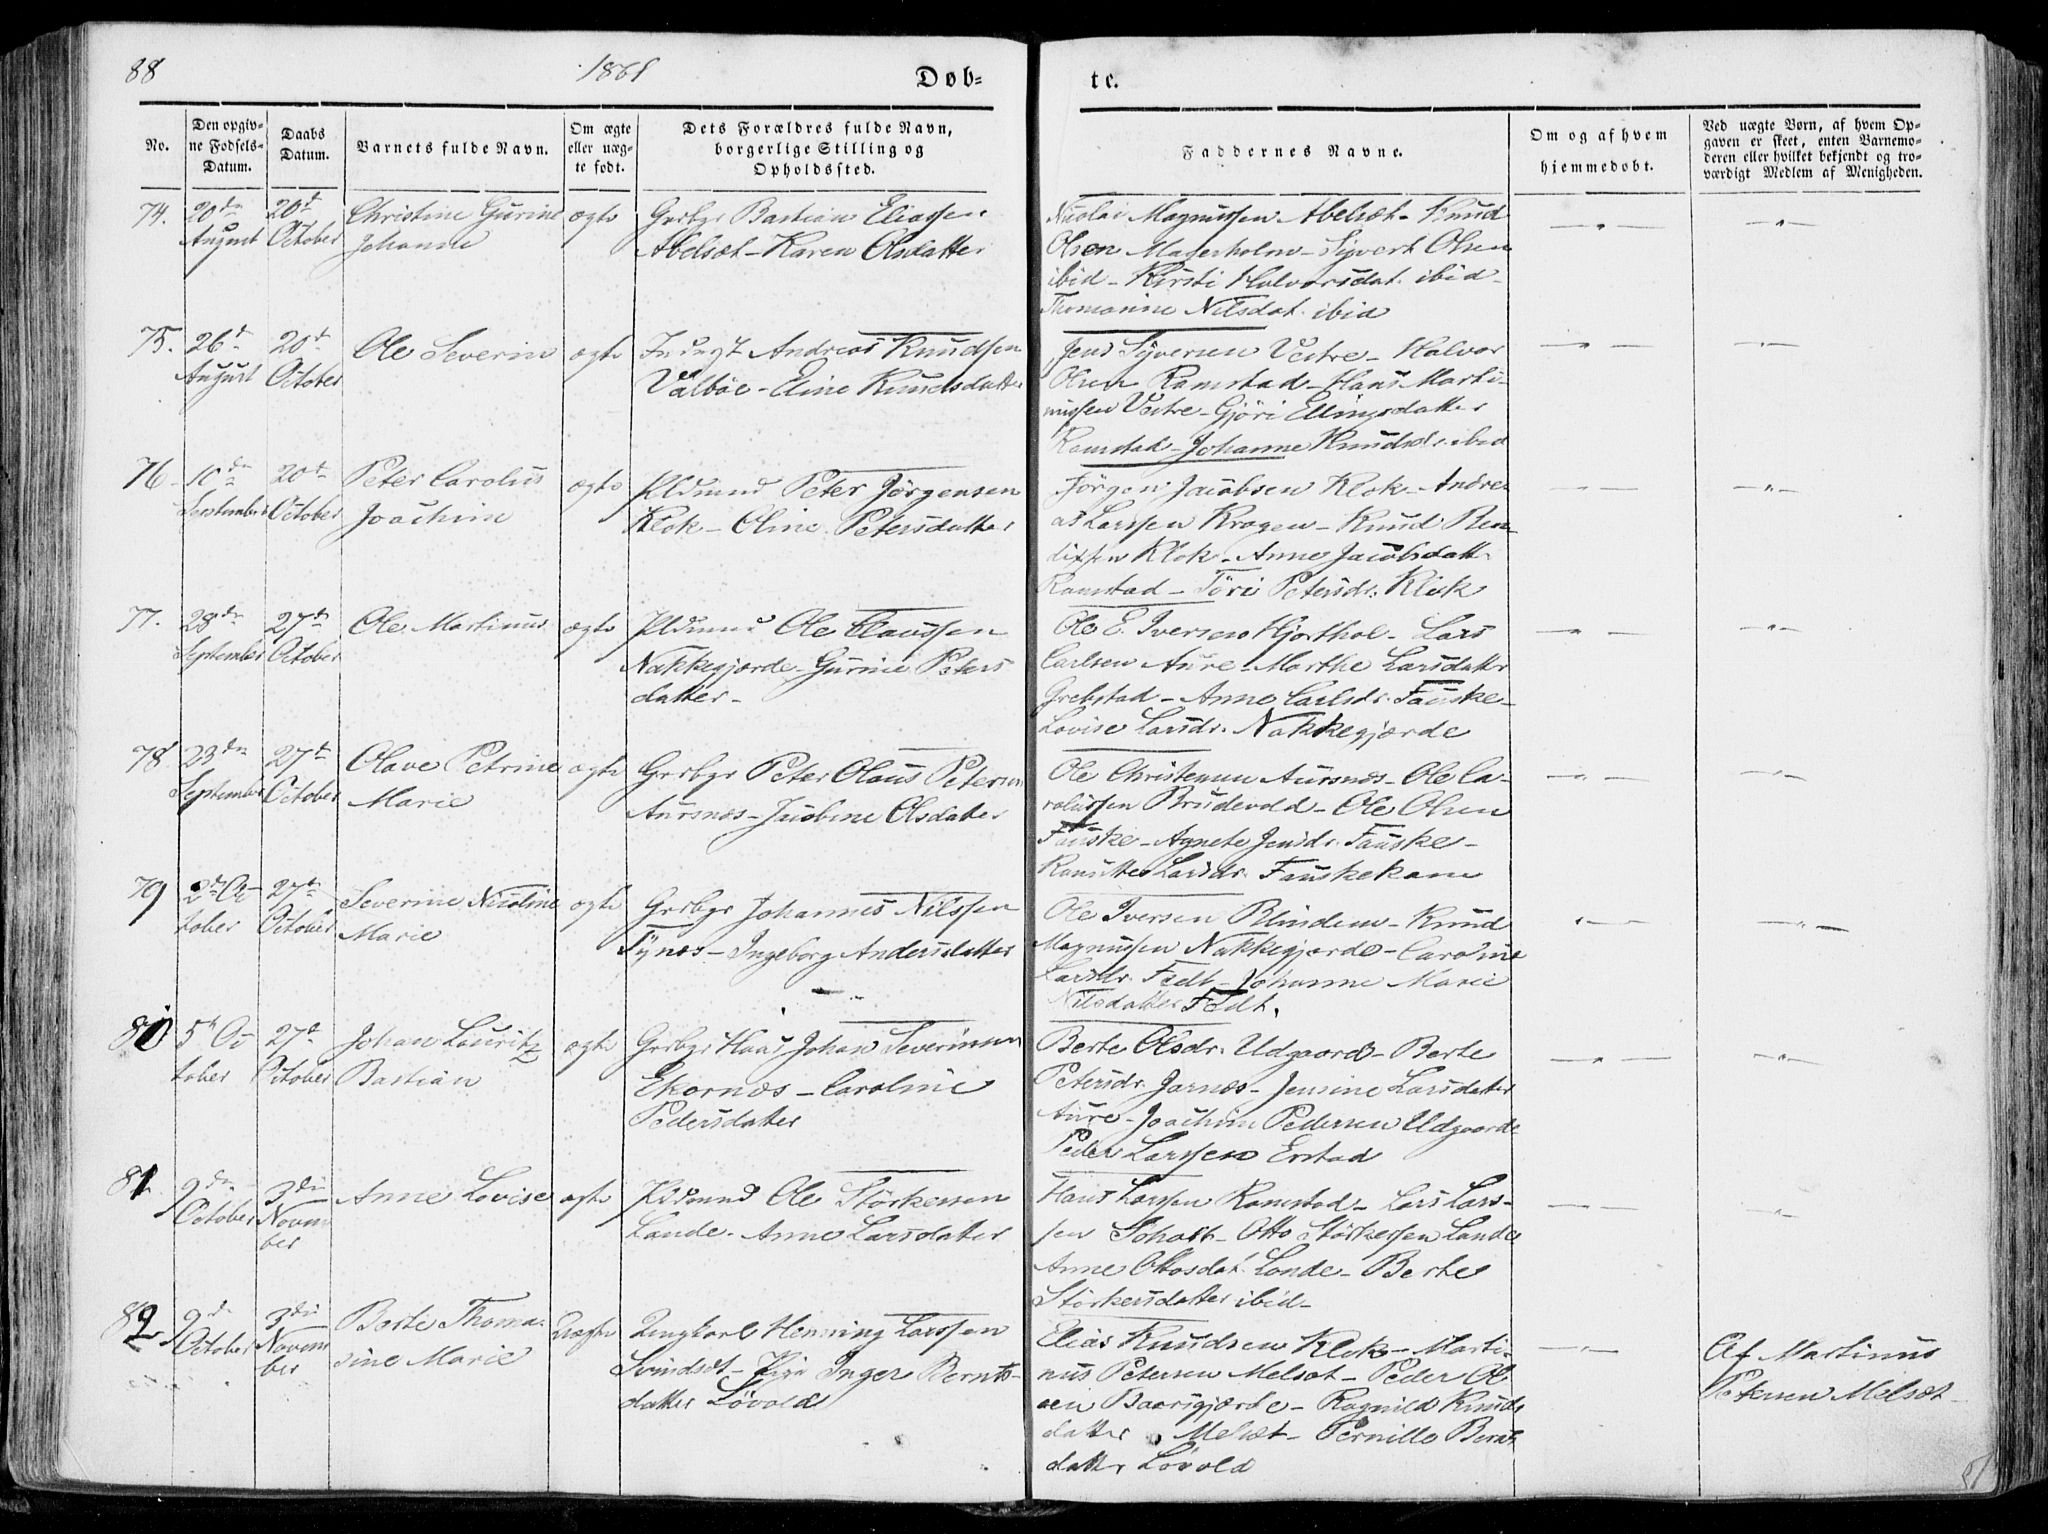 88
1861
Døb-
te.
No.
Den opgiv-
ne Fødsels-
Datum.
Daabs
Datum.
Barnets fulde Navn.
Om ægte
eller uæg-
te født.
Dets Forældres fulde Navn,
borgerlige Stilling og
Opholdssted.
Faddernes Navne.
Om og af hvem
hjemmedøbt.
Ved uægte Børn, af hvem Op-
gaven er skeet, enten Barnemo-
deren eller hvilket bekjendt og tro-
værdigt Medlem af Menigheden.
74.
20de
August
20de
October
Christine Gurine
Johanne
ægte
Grbgr Bastian Eliassen
Abelsæt - Karen Olsdatter
Nicolai Magnussen Abelsæt - Knud
Olsen Magerholm - Syvert Olsen
ibid - Kirsti Halvorsdat. ibid -
Thomanine Nilsdat. ibid
75.
26de
August
20de
October
Ole Severin
ægte
Andreas Knudsen
Valbøe - Eline Knudsdatter
Jens Syversen Vestre - Halvor
Olsen Ramstad - Hans Marti-
nussen Vestre - Gjöri Ellingsdatter
Ramstad - Johanne Knudsdr. ibid
76
10de
September
20de
October
Peter Carolus
Joachim
ægte
Pldmnd Peter Jörgensen
Klok - Oline Petersdatter
Jörgen Jacobsen Klok - Andre-
as Larssen Kragen - Knud Ben-
dixsen Klok - Anne Jacobsdatt.
Ramstad - Töri Petersdr. Klok
77.
28de
September
27de
October
Ole Martinus
ægte
Pldmnd Ole Claussen
Nakkegjærde - Gurine Peters
datter -
Ole E. Iversen Hjorthol - Lars
Carlsen Aure - Marthe Larsdatter
Grebstad - Anne Carlsdr. Fauske -
Lovise Larsdr. Nakkegjærde
78
23de
September
27de
October
Olave Petrine
Marie
ægte
Grbgr Peter Olaus Petersen
Aursnæs - Jacobine Olsdatter
Ole Christensen Aursnæs - Ole Ca-
rolussen Brudevold - Ole Olsen
Fauske - Agnete Jensdr. Fauske -
Larsdr. Fauskekane
79
2de Oc
tober
27de
October
Severine Nicoline
Marie
ægte
Grbgr Johannes Nilssen
Tynes - Ingeborg Andersdatter
Ole Iversen Blindem - Knud
Magnussen Nakkegjærde - Caroline
Larsdr. Fedt - Johanne Marie
Nilsdatter Fedt.
80
5te Oc
tober
27de
October
Johan Lauritz
Bastian
ægte
Grbgr Hans Johan Severinsen
Ekornæs - Caroline
Pedersdatter
Berte Olsdr. Udgaard - Berte
Petersdr. Jarnæs - Jensine Larsdatter
Aure - Joachim Pedersen Udgaarde
Peder Larssen Erstad
81
9de
October
3die
Novem
ber
Anne Lovise
ægte
Pldmnd Ole Störkersen
Lande - Anne Larsdatter
Hans Larssen Ramstad - Lars Lars-
sen Scholt - Otto Störkersen Lande
Anne Ottosdat. Lande - Berte
Störkersdatter ibid -
82
9de
October
3die
Novem
ber
Berte Thoma-
sine Marie
Uægte
Ungkarl Henning Larssen
Svindset - Pige Inger Bernts-
datter Løvold
Elias Knudsen Klok - Marti-
nus Petersen Melsæt - Peder Ol
sen Baarsgjærde - Ragnild Knuds
datter Melsæt - Pernille Bernts
datter Løvold
Af Martinus
Petersen Melsæt